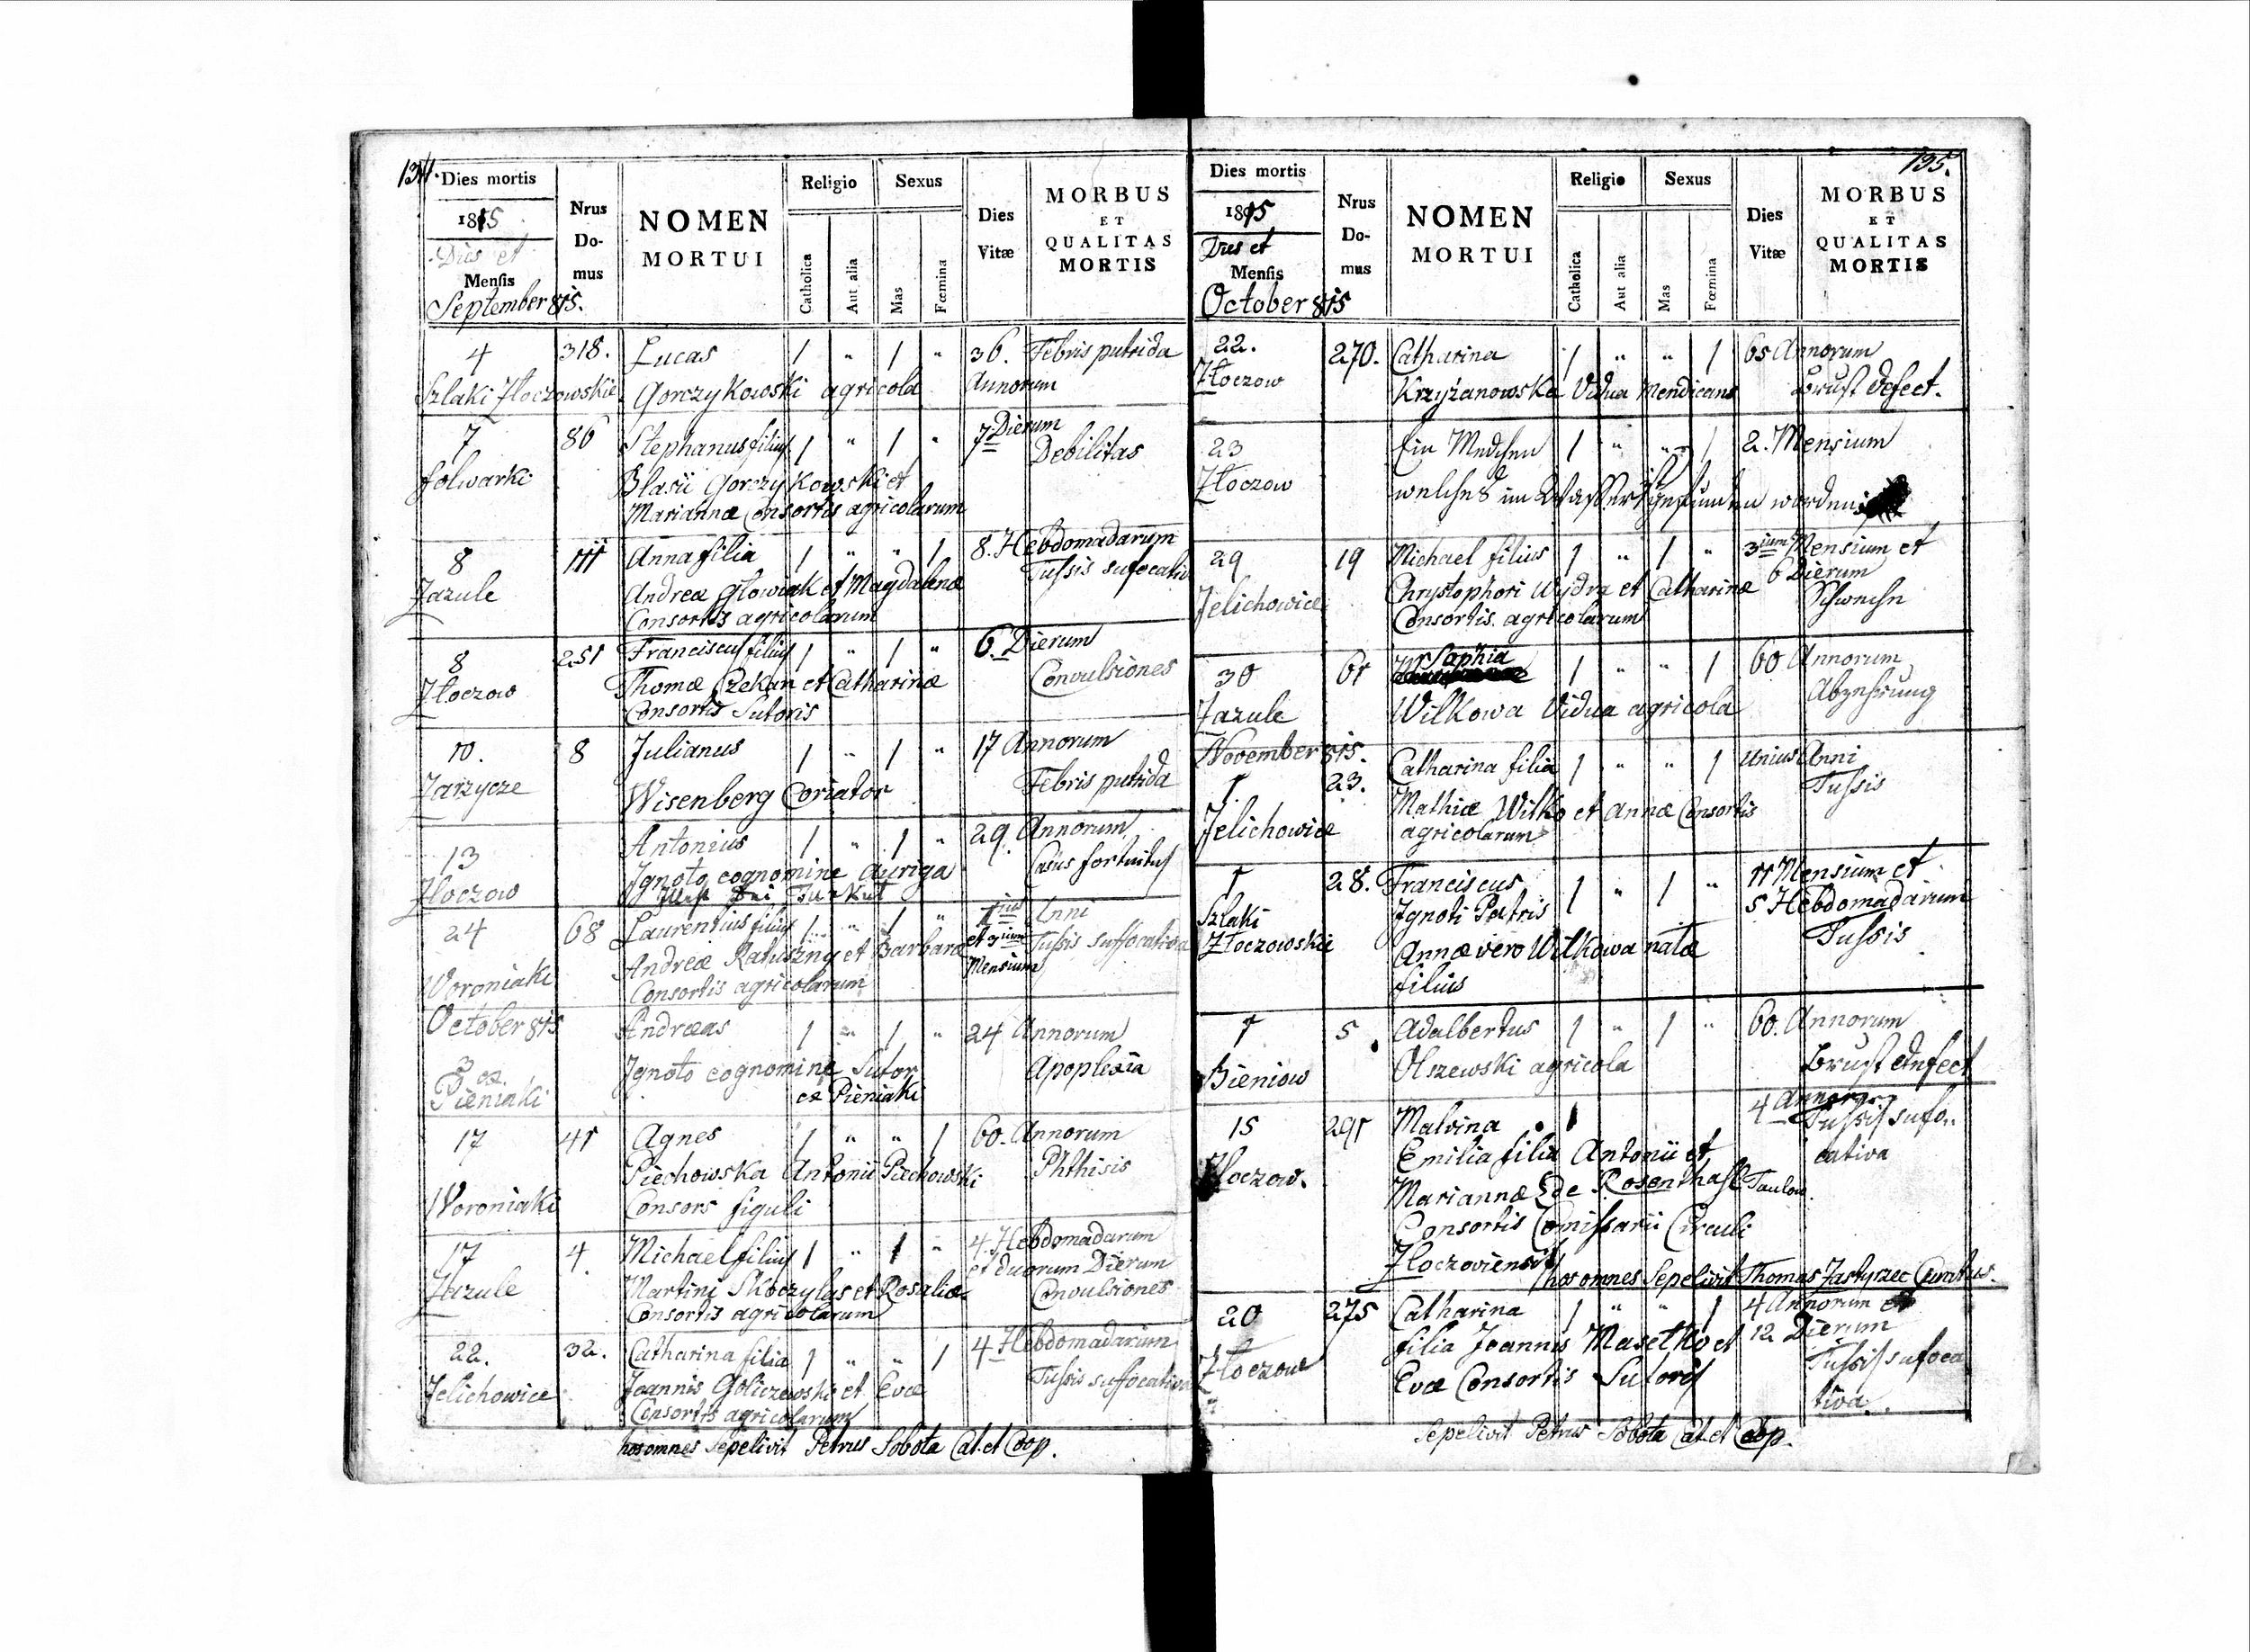 134.
Dies mortis
1815
Dies et
Mensis
September 815.
Nrus Do-mus
NOMEN MORTUI
Religio
Catholica
Aut alia
Sexus
Mas
Fœmina
Dies Vitæ
MORBUS ET QUALITAS MORTIS
4 318. Lucas 1 " 1 " 36. Febris putrida
Szlaki Złoczowskie Gorczykowski agricola Annorum
7 86 Stephanus filius 1 " 1 " 7 Dierum
folwarki Debilitas
Blasii Gorczykowski et
Mariannæ Consortis agricolarum
8 111 Anna filia 1 " " 1 8. Hebdomadarum
Jazule Andreæ Glowiak et Magdalenæ Tussis sufocativ
Consortis agricolarum
8 251 Franciscus filius 1 " 1 " 6. Dierum
Złoczow Thomæ Czekan et Catharinæ Convulsiones
Consortis Sutoris
10. 8 Julianus 1 " 1 " 17 Annorum
Zarzycze Wisenberg Coriator Febris putrida
13 Antonius 1 " 1 " 29. Annorum
Złoczow Ignoto cognomine Auriga Casus fortuitus
Turkut
24 68 Laurentius filius 1 " 1 " 1ius Anni
Woroniaki Andreæ Ratuszny et Barbaræ et 3ium Mensium Tussis suffocativa
Consortis agricolarum
October 815 Andreas 1 " 1 " 24 Annorum
3 ex Pieniaki Ignoto cognomine Sutor Apoplexia
ex Pieniaki
17 41 Agnes 1 " " 1 60. Annorum
Woroniaki Piechowska Antonii Piechowski Phthisis
Consors figuli
17 4. Michael filius 1 " 1 " 4 Hebdomadarum
Jazule Martini Skoczylas et Rosaliæ et duorum Dierum
Consortis agricolarum Convulsiones
22. 32. Catharina filia 1 " " 1 4 Hebdomadarum
Jelichowice Joannis Goliczewski et Evæ Tussis suffocativa
Consortis agricolarum
hos omnes Sepelivit Petrus Sobota Cat. et Coop.
135.
Dies mortis
1815
Dies et
Mensis
October 815
Nrus Do-mus
NOMEN MORTUI
Religio
Catholica
Aut alia
Sexus
Mas
Fœmina
Dies Vitæ
MORBUS ET QUALITAS MORTIS
22. 270. Catharina 1 " " 1 65 Annorum
Złoczow Krzyżanowska Vidua Mendicans Brust Defect.
23 Ein Medchen 1 " " 1 2. Mensium
Złoczow welches im Wasser gefunden worden
29 19 Michael filius 1 " 1 " 3ium Mensium et
Jelichowice Chrystophori Wydra et Catharinæ 6 Dierum
Consortis agricolarum
30 61 Sophia 1 " " 1 60 Annorum
Jazule Wilkowa Vidua agricola Abzehrung
November 815.
1. 23. Catharina filia 1 " " 1 Unius Anni
Jelichowice Mathiæ Wilko et Annæ Consortis Tussis
agricolarum
1 28. Franciscus 1 " 1 " 11 Mensium et
Szlaki Ignoti Patris 5 Hebdomadarum
Złoczowskie Annæ vero Wilkowa natæ Tussis
filius
1 5 Adalbertus 1 " 1 " 60. Annorum
Bieniow Olszewski agricola Brust Defect
15 291 Malvina 1 4 Annorum
Złoczow. Emilia filia Antonii et Tussis sufo..
Mariannæ de Rosenthal cativa
Consortis Comissarii Circuli
Złoczoviensis
hos omnes Sepelivit Thomas Jastyszec Curatus.
20 275 Catharina 1 " " 1 4 Annorum et
Złoczow filia Joannis Masetko et 12 Dierum
Evæ Consortis Sutoris Tussis sufoca
tiva.
Sepelivit Petrus Sobota Cat. et Coop.